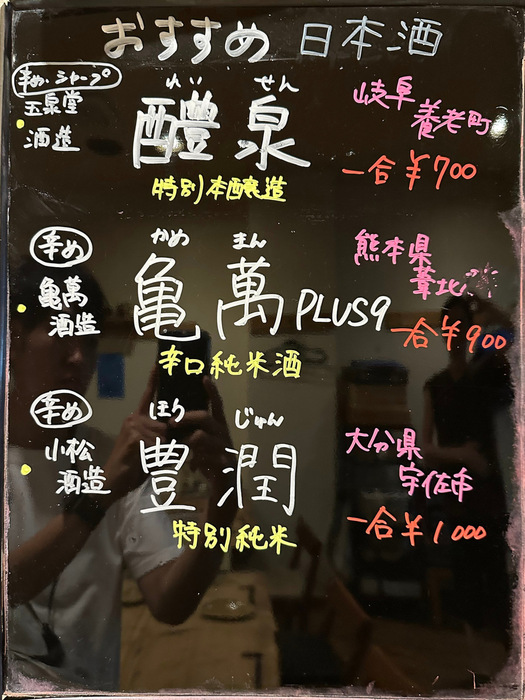 おすすめ 日本酒
辛め・シャープ
玉泉堂
酒造
れい せん
醴泉
特別本醸造
岐阜
養老町
一合¥700
辛め
亀萬
酒造
かめ まん
亀萬 PLUS9
辛口純米酒
熊本県
葦北
一合¥900
辛め
小松
酒造
ほう じゅん
豊潤
特別純米
大分県
宇佐市
一合¥1000